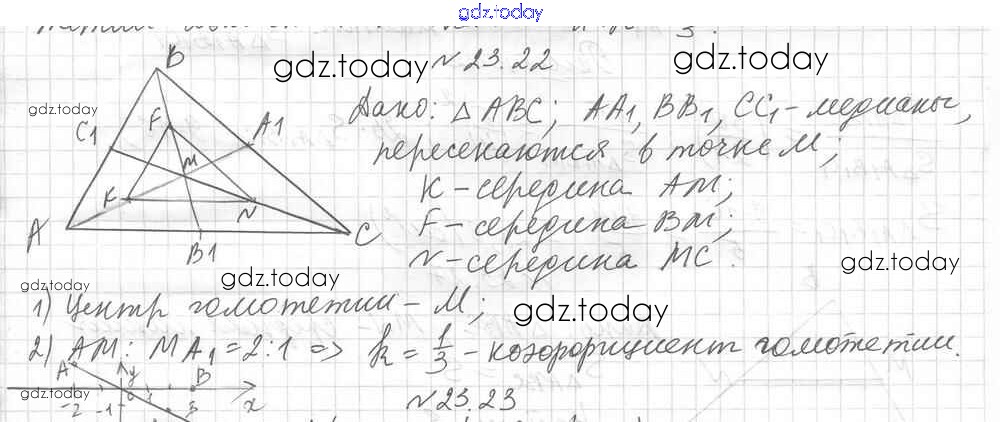 gdz.today
№ 23.22
gdz.today
gdz.today
gdz.today
B
F
C1
A1
M
K
N
A
B1
C
Дано: △ ABC; AA1, BB1, CC1 - медианы,
пересекаются в точке M;
K - середина AM;
F - середина BM;
N - середина MC.
gdz.today
gdz.today
gdz.today
1) Центр гомотетии - M;
gdz.today
2) AM : MA1 = 2:1 => k = 1/3 - коэффициент гомотетии.
gdz.today
A
y
B
-2 -1
x
№ 23.23
gdz.today
gdz.today